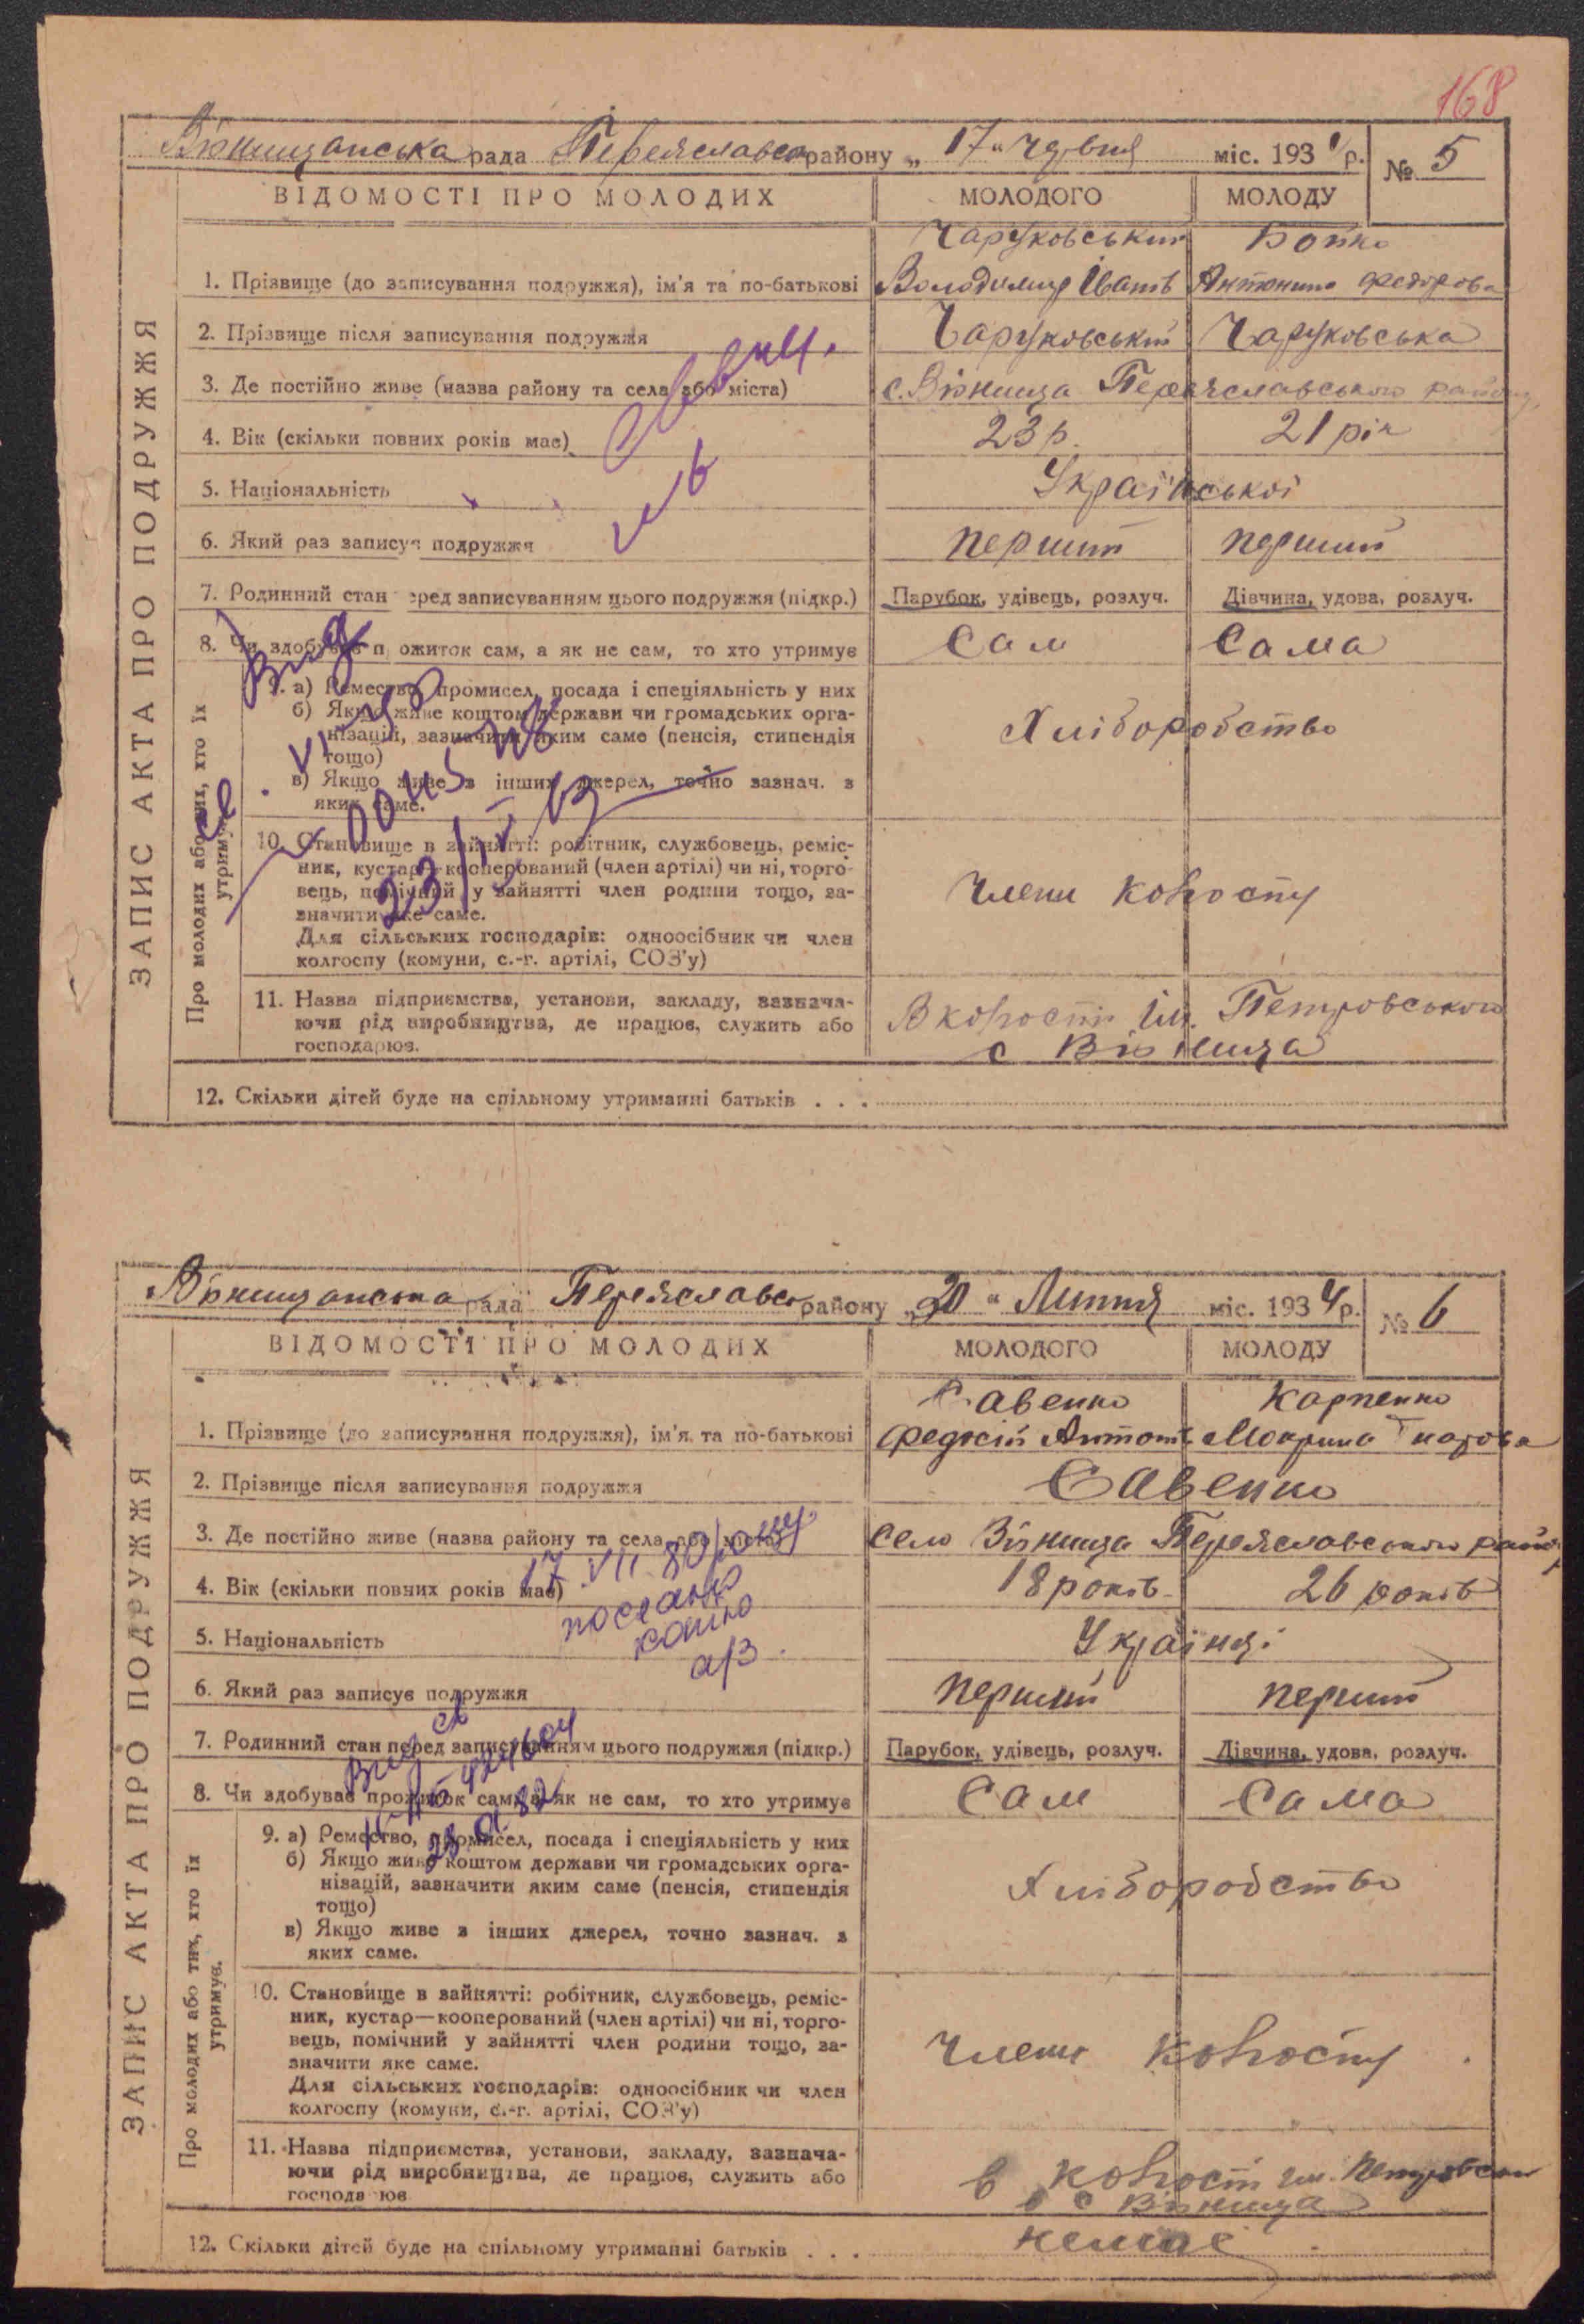 168
Війницанська рада Переяславсь району „ 17 " червня міс. 1934 р.
№ 5
ВІДОМОСТІ ПРО МОЛОДИХ
МОЛОДОГО
МОЛОДУ
ЗАПИС АКТА ПРО ПОДРУЖЖЯ
Чаруковський Бойко
1. Прізвище (до записування подружжя), ім'я та по-батькові Володимир Іванів Антонина Федорова
2. Прізвище після записування подружжя Чаруковський Чаруковська
3. Де постійно живе (назва району та села або міста) с. Війница Переяславського району
4. Вік (скільки повних років має) 23 р. 21 рік
5. Національність Української
6. Який раз записує подружжя перший перший
7. Родинний стан перед записуванням цього подружжя (підкр.) Парубок, удівець, розлуч. Дівчина, удова, розлуч.
8. Чи здобуває прожиток сам, а як не сам, то хто утримує Сам Сама
Про молодих або тих, хто їх утримує.
9. а) Ремество, промисел, посада і спеціяльність у них
б) Якщо живе коштом держави чи громадських орга-
нізацій, зазначити яким саме (пенсія, стипендія
тощо)
Хліборобство
в) Якщо живе з інших джерел, точно зазнач. з
яких саме.
10. Становище в зайнятті: робітник, службовець, реміс-
ник, кустар—кооперований (член артілі) чи ні, торго-
вець, помічний у зайнятті член родини тощо, за-
значити яке саме.
Члени колгоспу
Для сільських господарів: одноосібник чи член
колгоспу (комуни, с.-г. артілі, СОЗ'у)
11. Назва підприємства, установи, закладу, зазнача-
ючи рід виробництва, де працює, служить або
господарює.
В колгоспі ім. Петровського
с Війница
12. Скільки дітей буде на спільному утриманні батьків . . .
Вид
23/IX 63
Війницанська рада Переяславсь району „ 20 " Липня міс. 1934 р.
№ 6
ВІДОМОСТІ ПРО МОЛОДИХ
МОЛОДОГО
МОЛОДУ
ЗАПИС АКТА ПРО ПОДРУЖЖЯ
Савенко Карпенко
1. Прізвище (до записування подружжя), ім'я та по-батькові Федосій Антонів Мокрина
2. Прізвище після записування подружжя Савенко
3. Де постійно живе (назва району та села або міста) село Війница Переяславського район
4. Вік (скільки повних років має) 18 років 26 років
17.VII.80 року
послано
копію
а/з
5. Національність Українці
6. Який раз записує подружжя перший перший
7. Родинний стан перед записуванням цього подружжя (підкр.) Парубок, удівець, розлуч. Дівчина, удова, розлуч.
8. Чи здобуває прожиток сам, а як не сам, то хто утримує Сам Сама
Про молодих або тих, хто їх утримує.
9. а) Ремество, промисел, посада і спеціяльність у них
б) Якщо живе коштом держави чи громадських орга-
нізацій, зазначити яким саме (пенсія, стипендія
тощо)
Хліборобство
в) Якщо живе з інших джерел, точно зазнач. з
яких саме.
10. Становище в зайнятті: робітник, службовець, реміс-
ник, кустар—кооперований (член артілі) чи ні, торго-
вець, помічний у зайнятті член родини тощо, за-
значити яке саме.
Члени колгоспу
Для сільських господарів: одноосібник чи член
колгоспу (комуни, с.-г. артілі, СОЗ'у)
11. Назва підприємства, установи, закладу, зазнача-
ючи рід виробництва, де працює, служить або
господарює
в колгоспі ім. Петровськ
с Війница
12. Скільки дітей буде на спільному утриманні батьків . . . немає